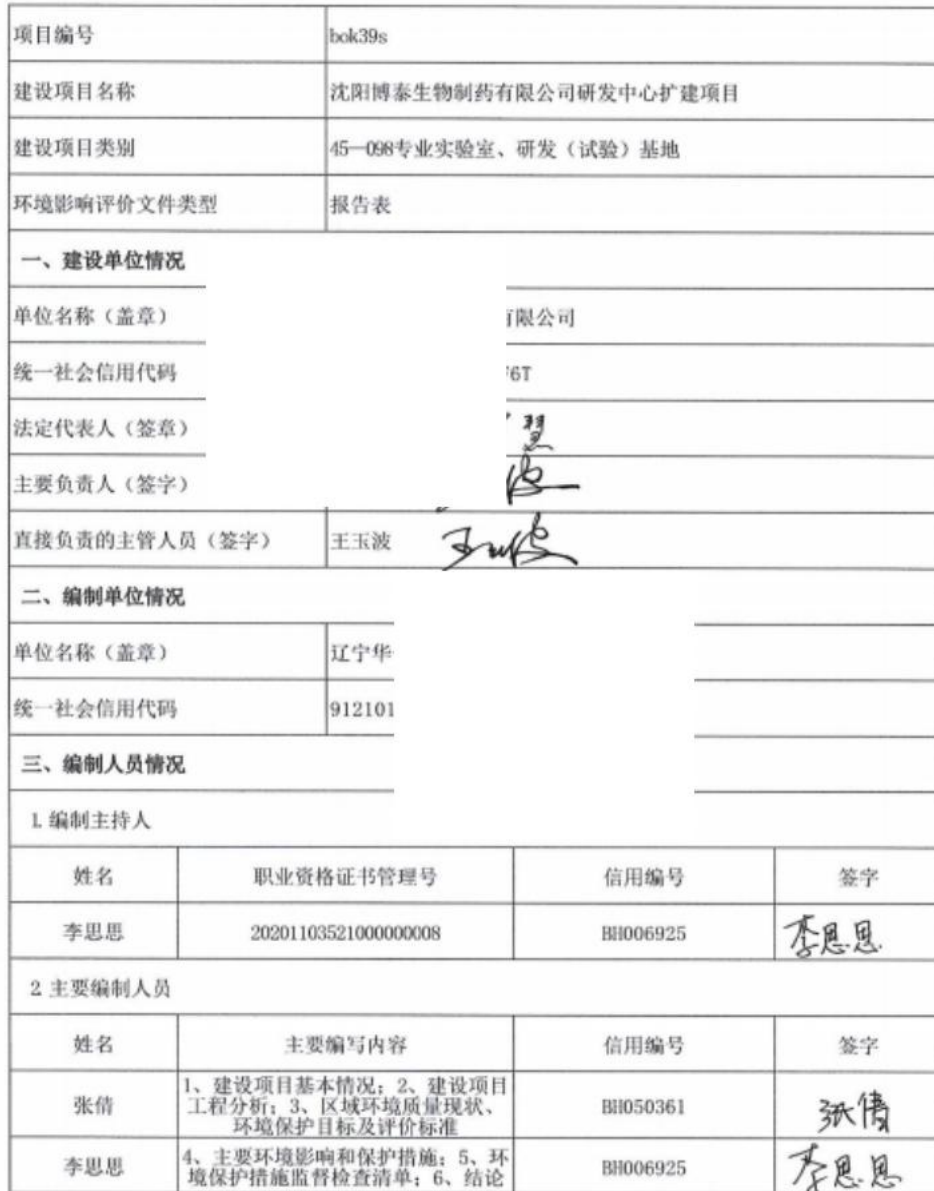 项目编号 bok39s
建设项目名称 沈阳博泰生物制药有限公司研发中心扩建项目
建设项目类别 45—098专业实验室、研发（试验）基地
环境影响评价文件类型 报告表
一、建设单位情况
单位名称（盖章） 有限公司
统一社会信用代码 6T
法定代表人（签章） 慧
主要负责人（签字） 波
直接负责的主管人员（签字） 王玉波 王玉波
二、编制单位情况
单位名称（盖章） 辽宁华
统一社会信用代码 912101
三、编制人员情况
1. 编制主持人
姓名 职业资格证书管理号 信用编号 签字
李思思 20201103521000000008 BH006925 李思思
2 主要编制人员
姓名 主要编写内容 信用编号 签字
张倩 1、建设项目基本情况；2、建设项目
工程分析；3、区域环境质量现状、
环境保护目标及评价标准 BH050361 张倩
李思思 4、主要环境影响和保护措施；5、环
境保护措施监督检查清单；6、结论 BH006925 李思思